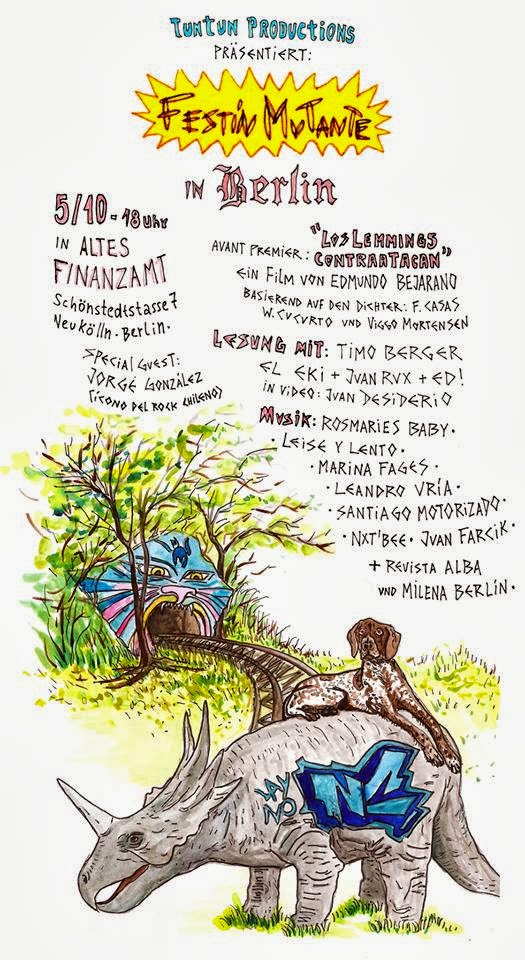 TUNTUN PRODUCTIONS
PRÄSENTIERT:
FESTÍN MUTANTE
IN Berlin
5/10 - 18 UHR
IN ALTES
FINANZAMT
Schönstedtstasse 7
Neukölln. Berlin.
SPECIAL GUEST:
JORGE GONZÁLEZ
(ÍCONO DEL ROCK CHILENO)
AVANT PREMIER: "LOS LEMMINGS
CONTRAATACAN"
EIN FILM VON EDMUNDO BEJARANO
BASIEREND AUF DEN DICHTER: F. CASAS
W. CUCURTO UND VIGGO MORTENSEN
LESUNG MIT: TIMO BERGER
EL EKI + JUAN RUX + ED!
IN VIDEO: JUAN DESIDERIO
MUSIK: ROSMARIES BABY.
· LEISE Y LENTO ·
· MARINA FAGES ·
· LEANDRO URÍA ·
· SANTIAGO MOTORIZADO ·
· NXT'BEE · JUAN FARCIK ·
+ REVISTA ALBA
UND MILENA BERLIN ·